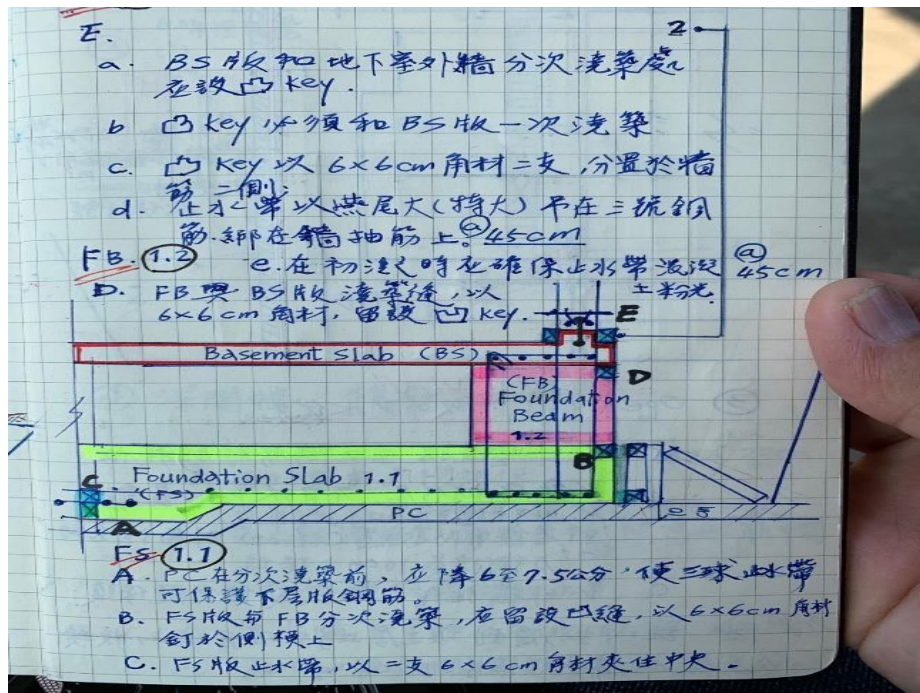 E.
2
a. BS版和地下室外牆分次澆築處
应設凸key.
b 凸key必須和BS版一次澆築
c. 凸key以6×6cm角材二支,分置於牆
筋二側.
d. 止水帶以燕尾大(特大)吊在三號鋼
筋.綁在牆抽筋上。@45cm
FB. 1.2
e. 在初澆時应確保止水帶混凝
土粉光.
@
45cm
D. FB與BS版澆築縫,以
6×6cm角材,留設凹key.
E
Basement Slab (BS)
D
(FB)
Foundation
Beam
1.2
B
Foundation Slab 1.1
C
(FS)
PC
A
FS 1.1
A. PC在分次澆築前,应降6至7.5公分,使三球止水帶
可保護下层版鋼筋。
B. FS版与FB分次澆築,应留設凹縫,以6×6cm角材
釘於側模上
C. FS版止水帶,以二支6×6cm角材夾住中央.